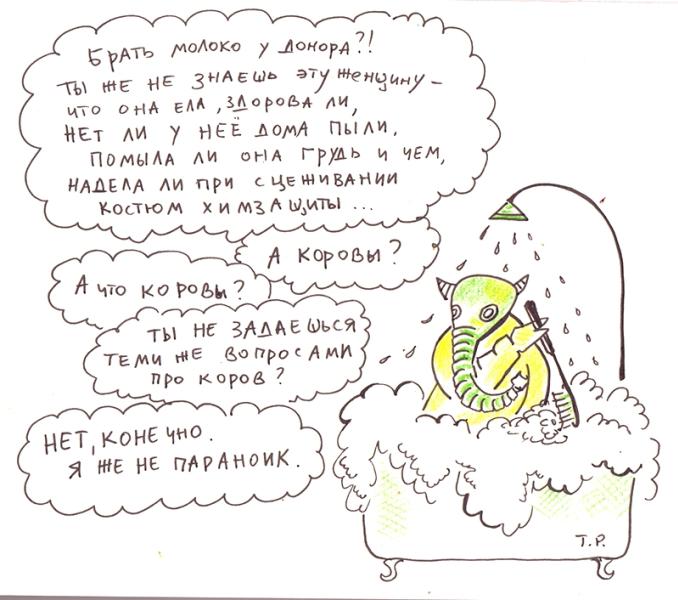 Брать молоко у донора?!
Ты же не знаешь эту женщину –
что она ела, здорова ли,
нет ли у неё дома пыли,
помыла ли она грудь и чем,
надела ли при сцеживании
костюм химзащиты ...
А коровы?
А что коровы?
Ты не задаешься
теми же вопросами
про коров?
Нет, конечно.
Я же не параноик.
T.P.